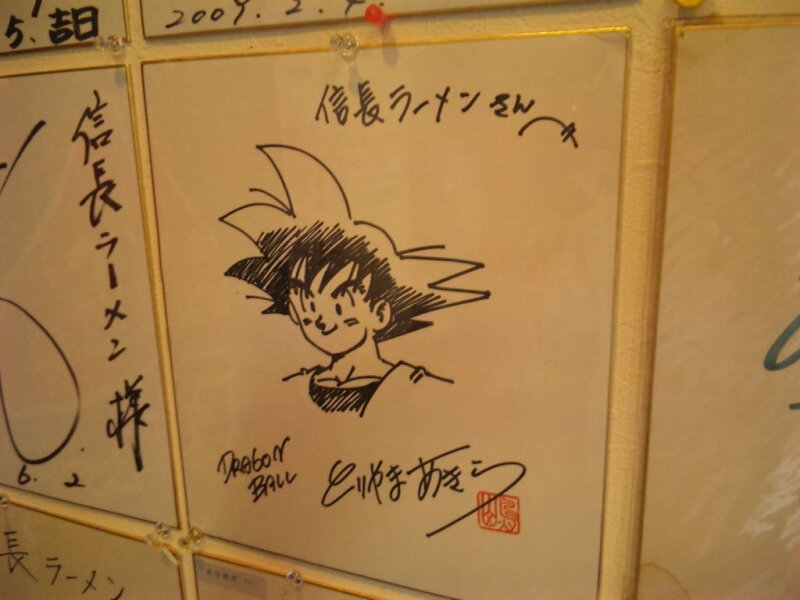 5.吉日
2009.2.4.
信長ラーメン様
6.2
信長ラーメンさんへ
DRAGON
BALL
とりやまあきら
長ラーメン